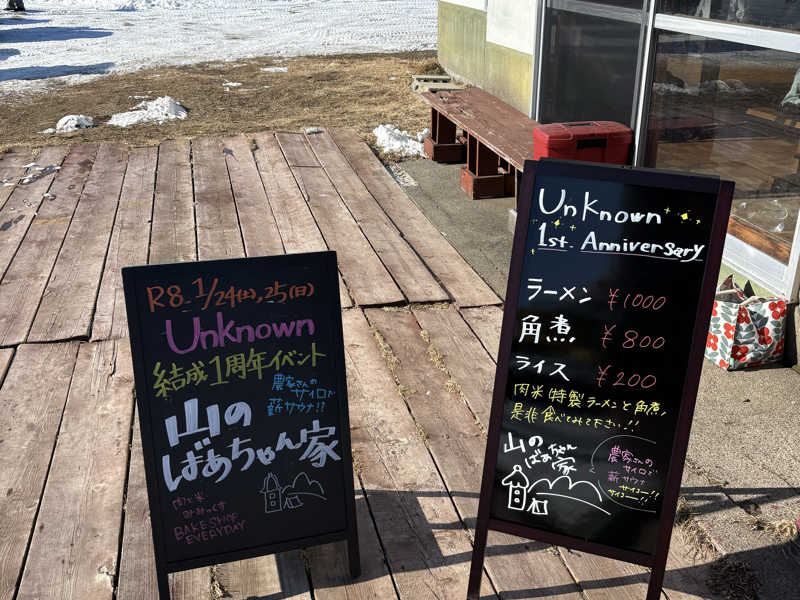 R8. 1/24(土), 25(日)
Unknown
結成1周年イベント
農家さんの
サイロで
薪サウナ!!
山の
ばあちゃん家
肉×米
みみっく
BAKE SHOP
EVERYDAY
Unknown
1st. Anniversary
ラーメン ¥1000
角煮 ¥800
ライス ¥200
肉米特製ラーメンと角煮、
是非食べてみて下さい!!
山の
ばあちゃん
家
農家さんの
サイロで
薪サウナ
サイコー!!
サイコー!!